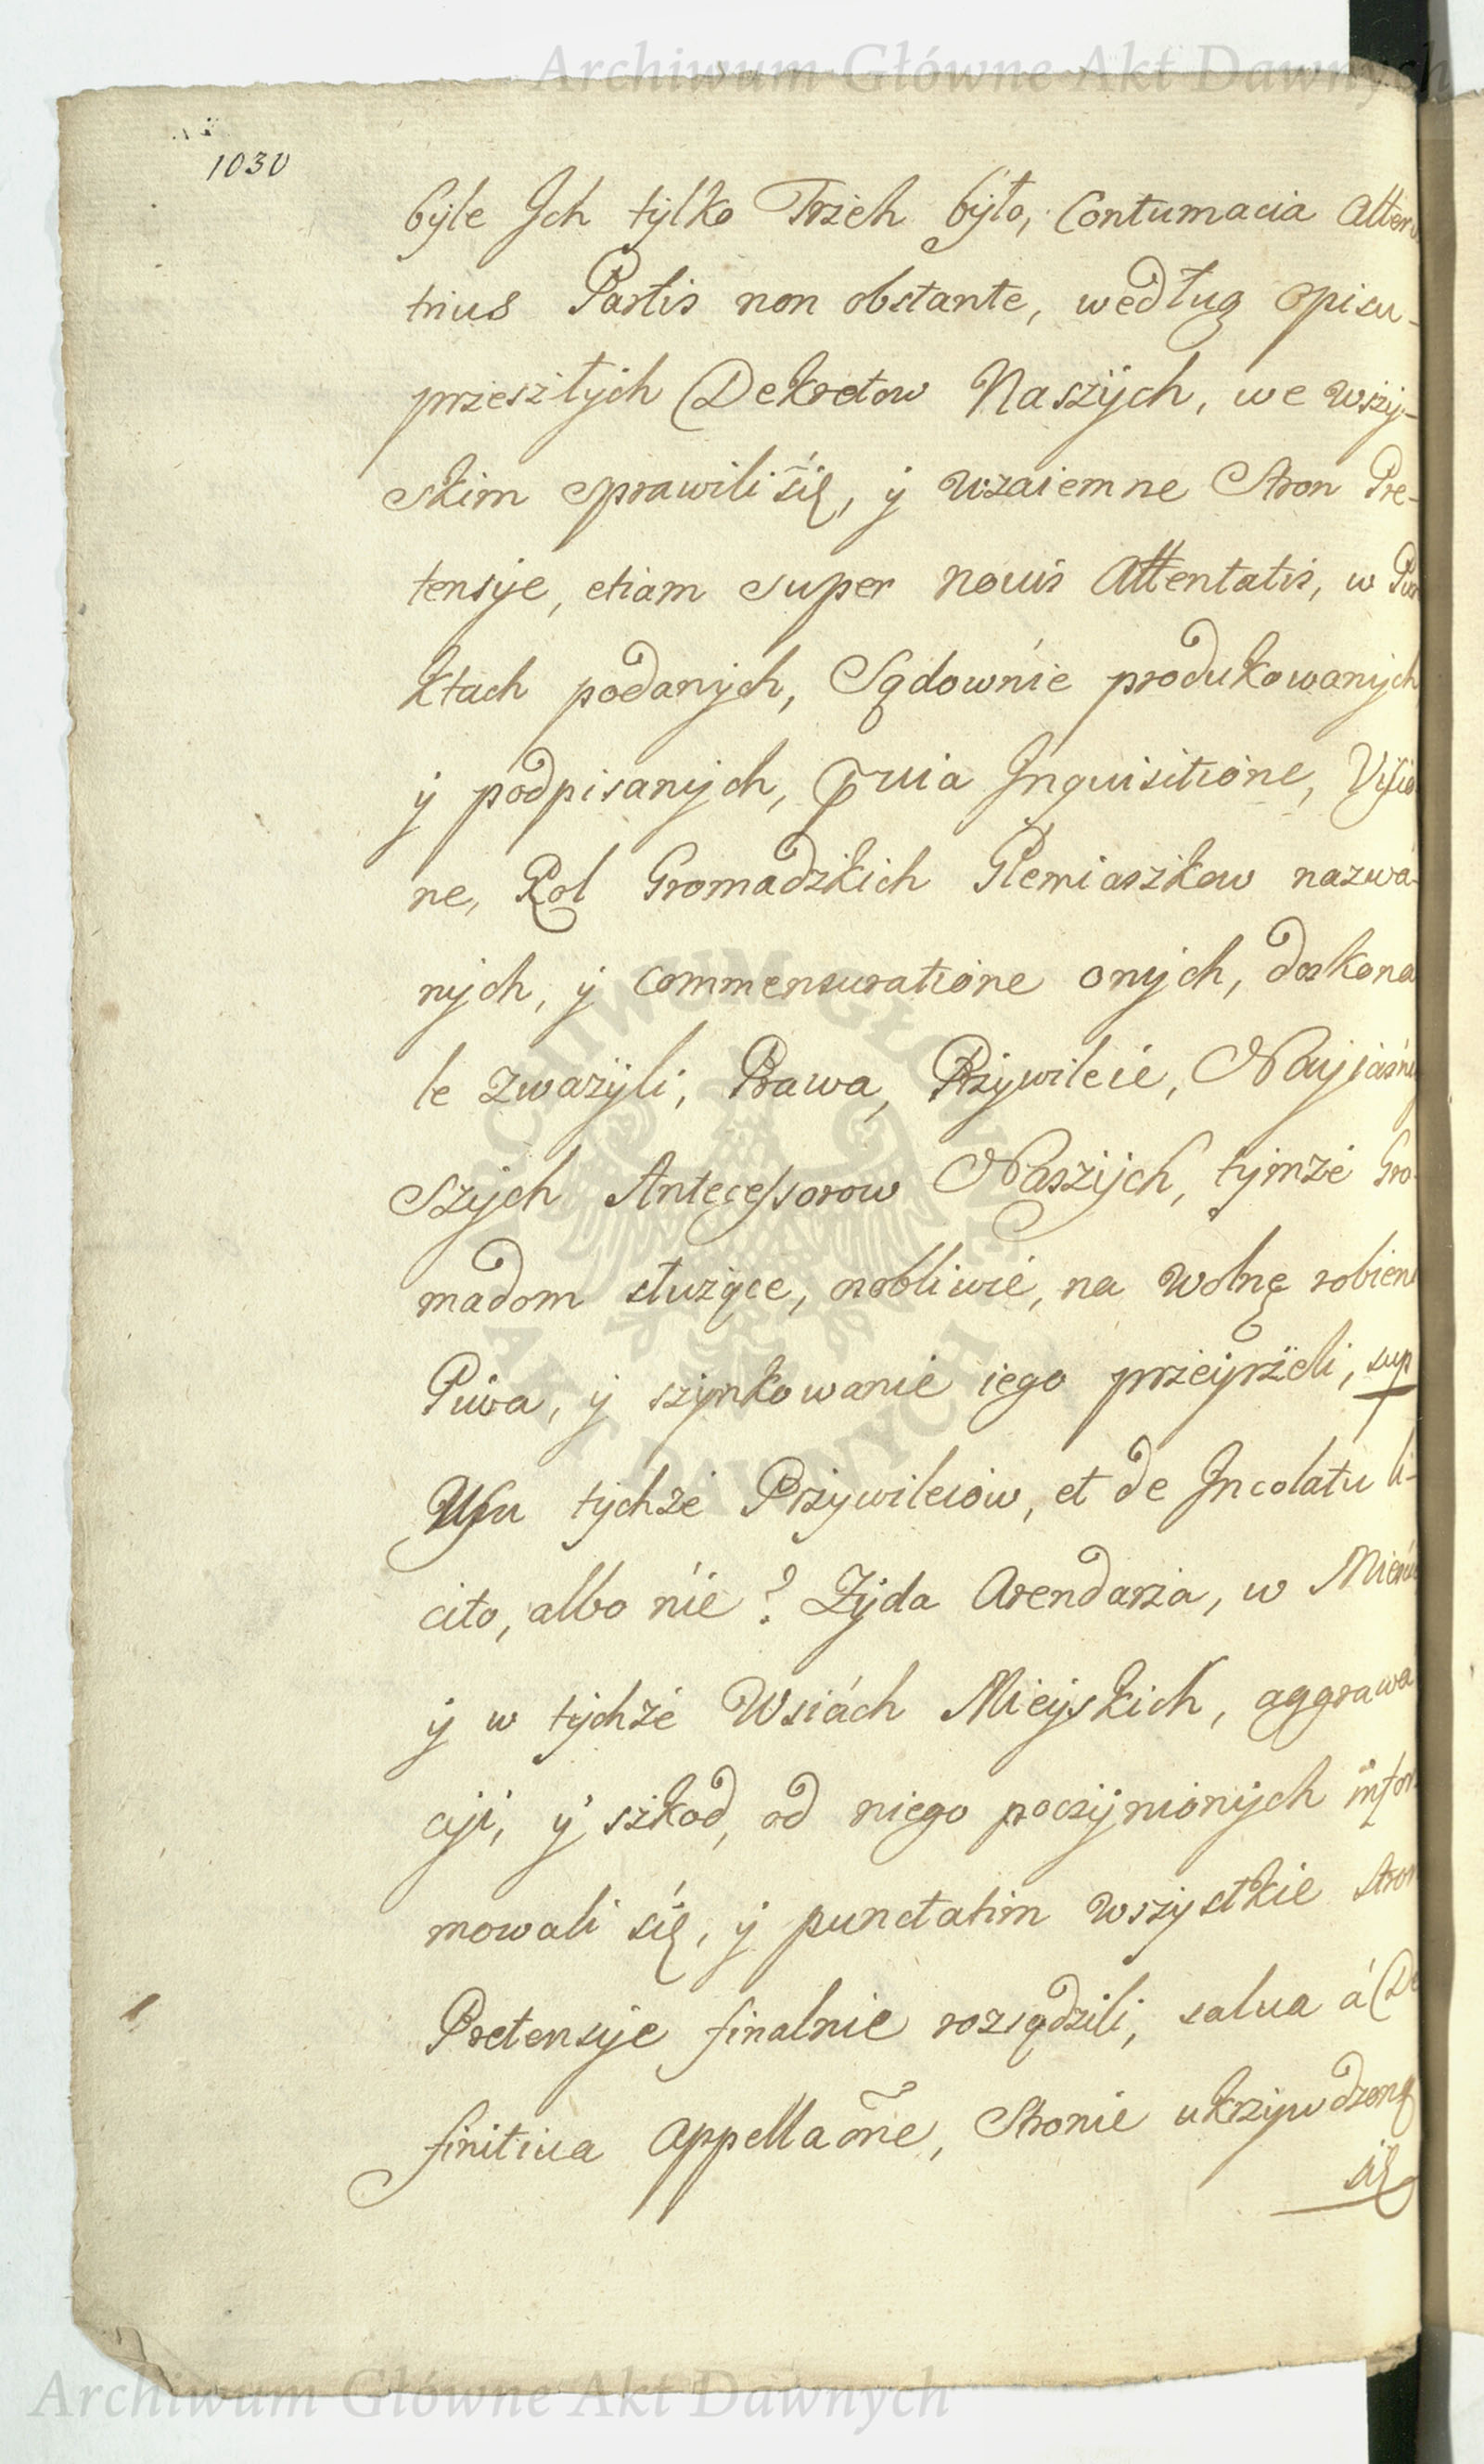 Archiwum Główne Akt Dawnych
1030
byle Jch tylko Trzech było, Contumacia Alteru
trius Partis non obstante, według opisu-
przeszłych Dekretow Naszych, we wszy-
skim sprawili się, y wzaiemne Stron Pre-
tensye, etiam super nouis Attentatis, w Pun
ktach podanych, Sądownie produkowanych
y podpisanych, pruia Jnquisitione, Visio
ne, Rol Gromadzkich Plemiaszkow nazwa-
nych, y commensuratione onych, doskona
le zwazyli, Prawa, Przywileie, Nayiasniey
szych Antecessorow Naszych, tymze Gro-
madom słuzące, osobliwie, na wolnę robieni
Piwa, y szynkowanie iego przeyrzeli, sup
Usu tychze Przywileiow, et de Jncolatu li-
cito, albo nie? Zyda Arendarza, w Mieście
y w tychze Wsiach Mieyskich, aggrawa
cyi, y szkod, od niego poczynionych infor
mowali się, y punctatim wszystkie stron
Pretensye finalnie rozsądzili, salua á De
finitiua Appellaõne, Stronie ukrzywdzoną
się
ARCHIWUM GŁÓWNE
AKT DAWNYCH
Archiwum Główne Akt Dawnych